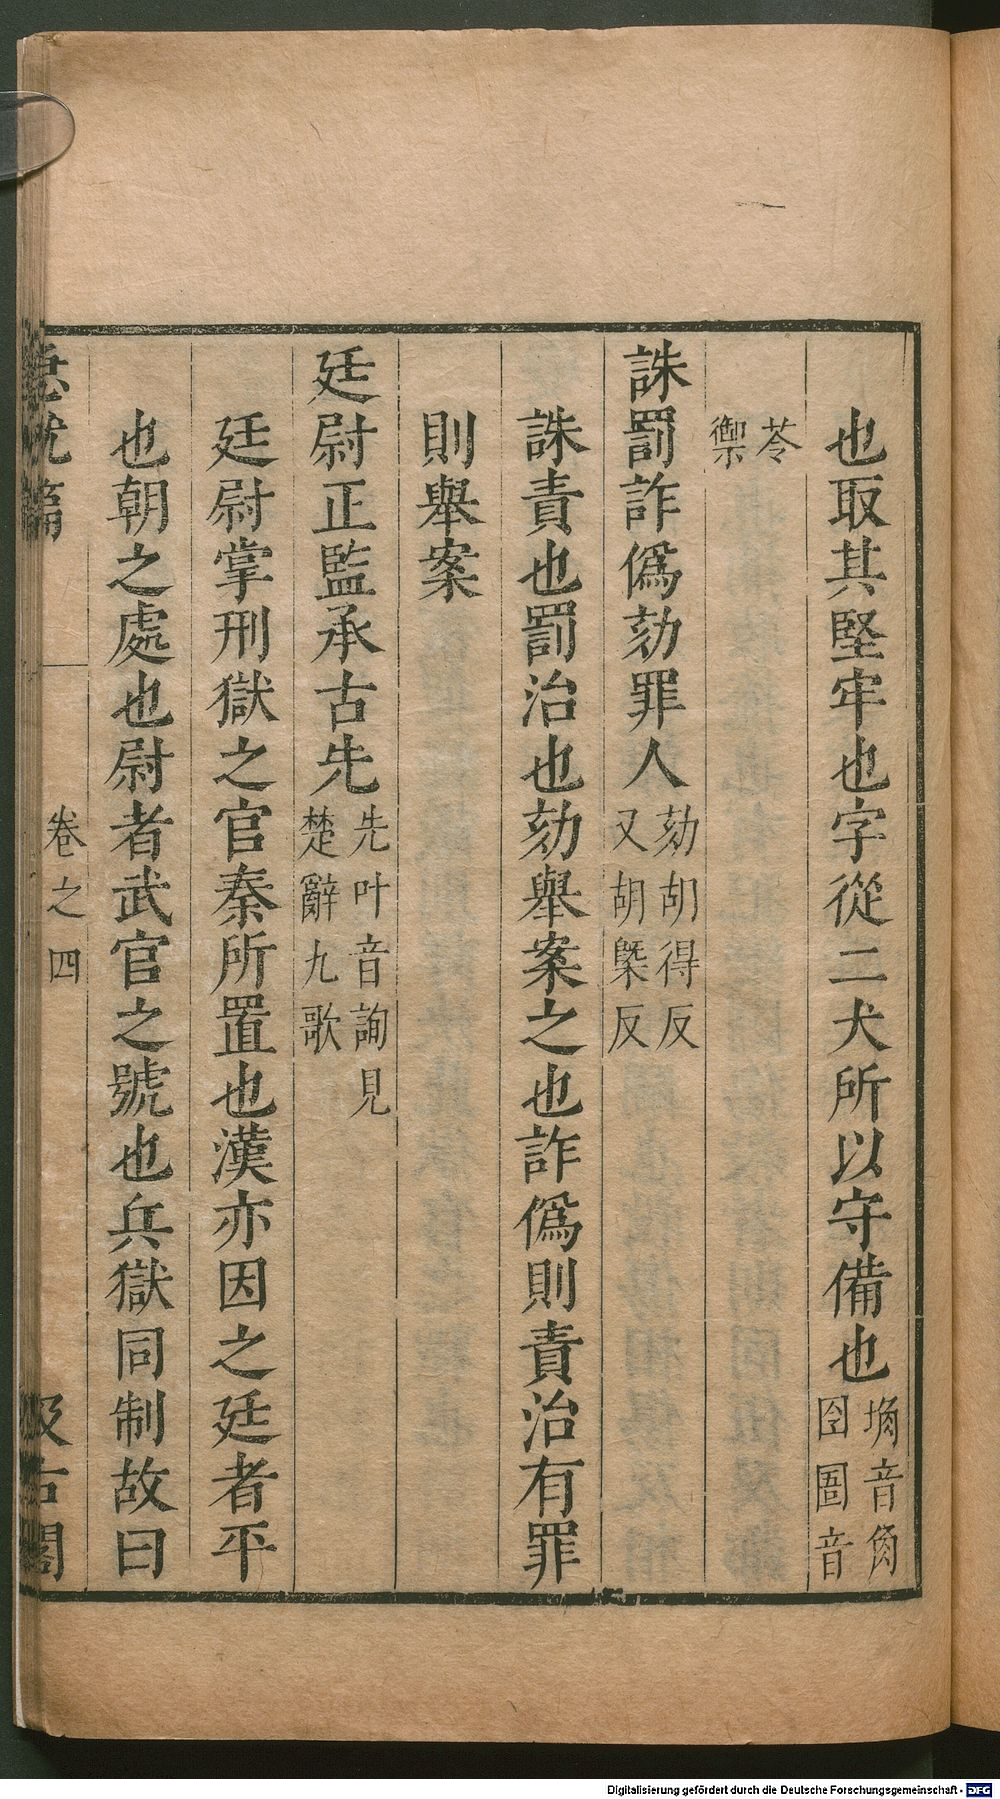 也取其堅牢也字從二犬所以守備也埆音角囹圄音
苓禦
誅罰詐僞劾罪人劾胡得反又胡槩反
誅責也罰治也劾舉案之也詐僞則責治有罪
則舉案
廷尉正監承古先先叶音詢見楚辭九歌
廷尉掌刑獄之官秦所置也漢亦因之廷者平
也朝之處也尉者武官之號也兵獄同制故曰
急就篇 卷之四 汲古閣
Digitalisierung gefördert durch die Deutsche Forschungsgemeinschaft - DFG